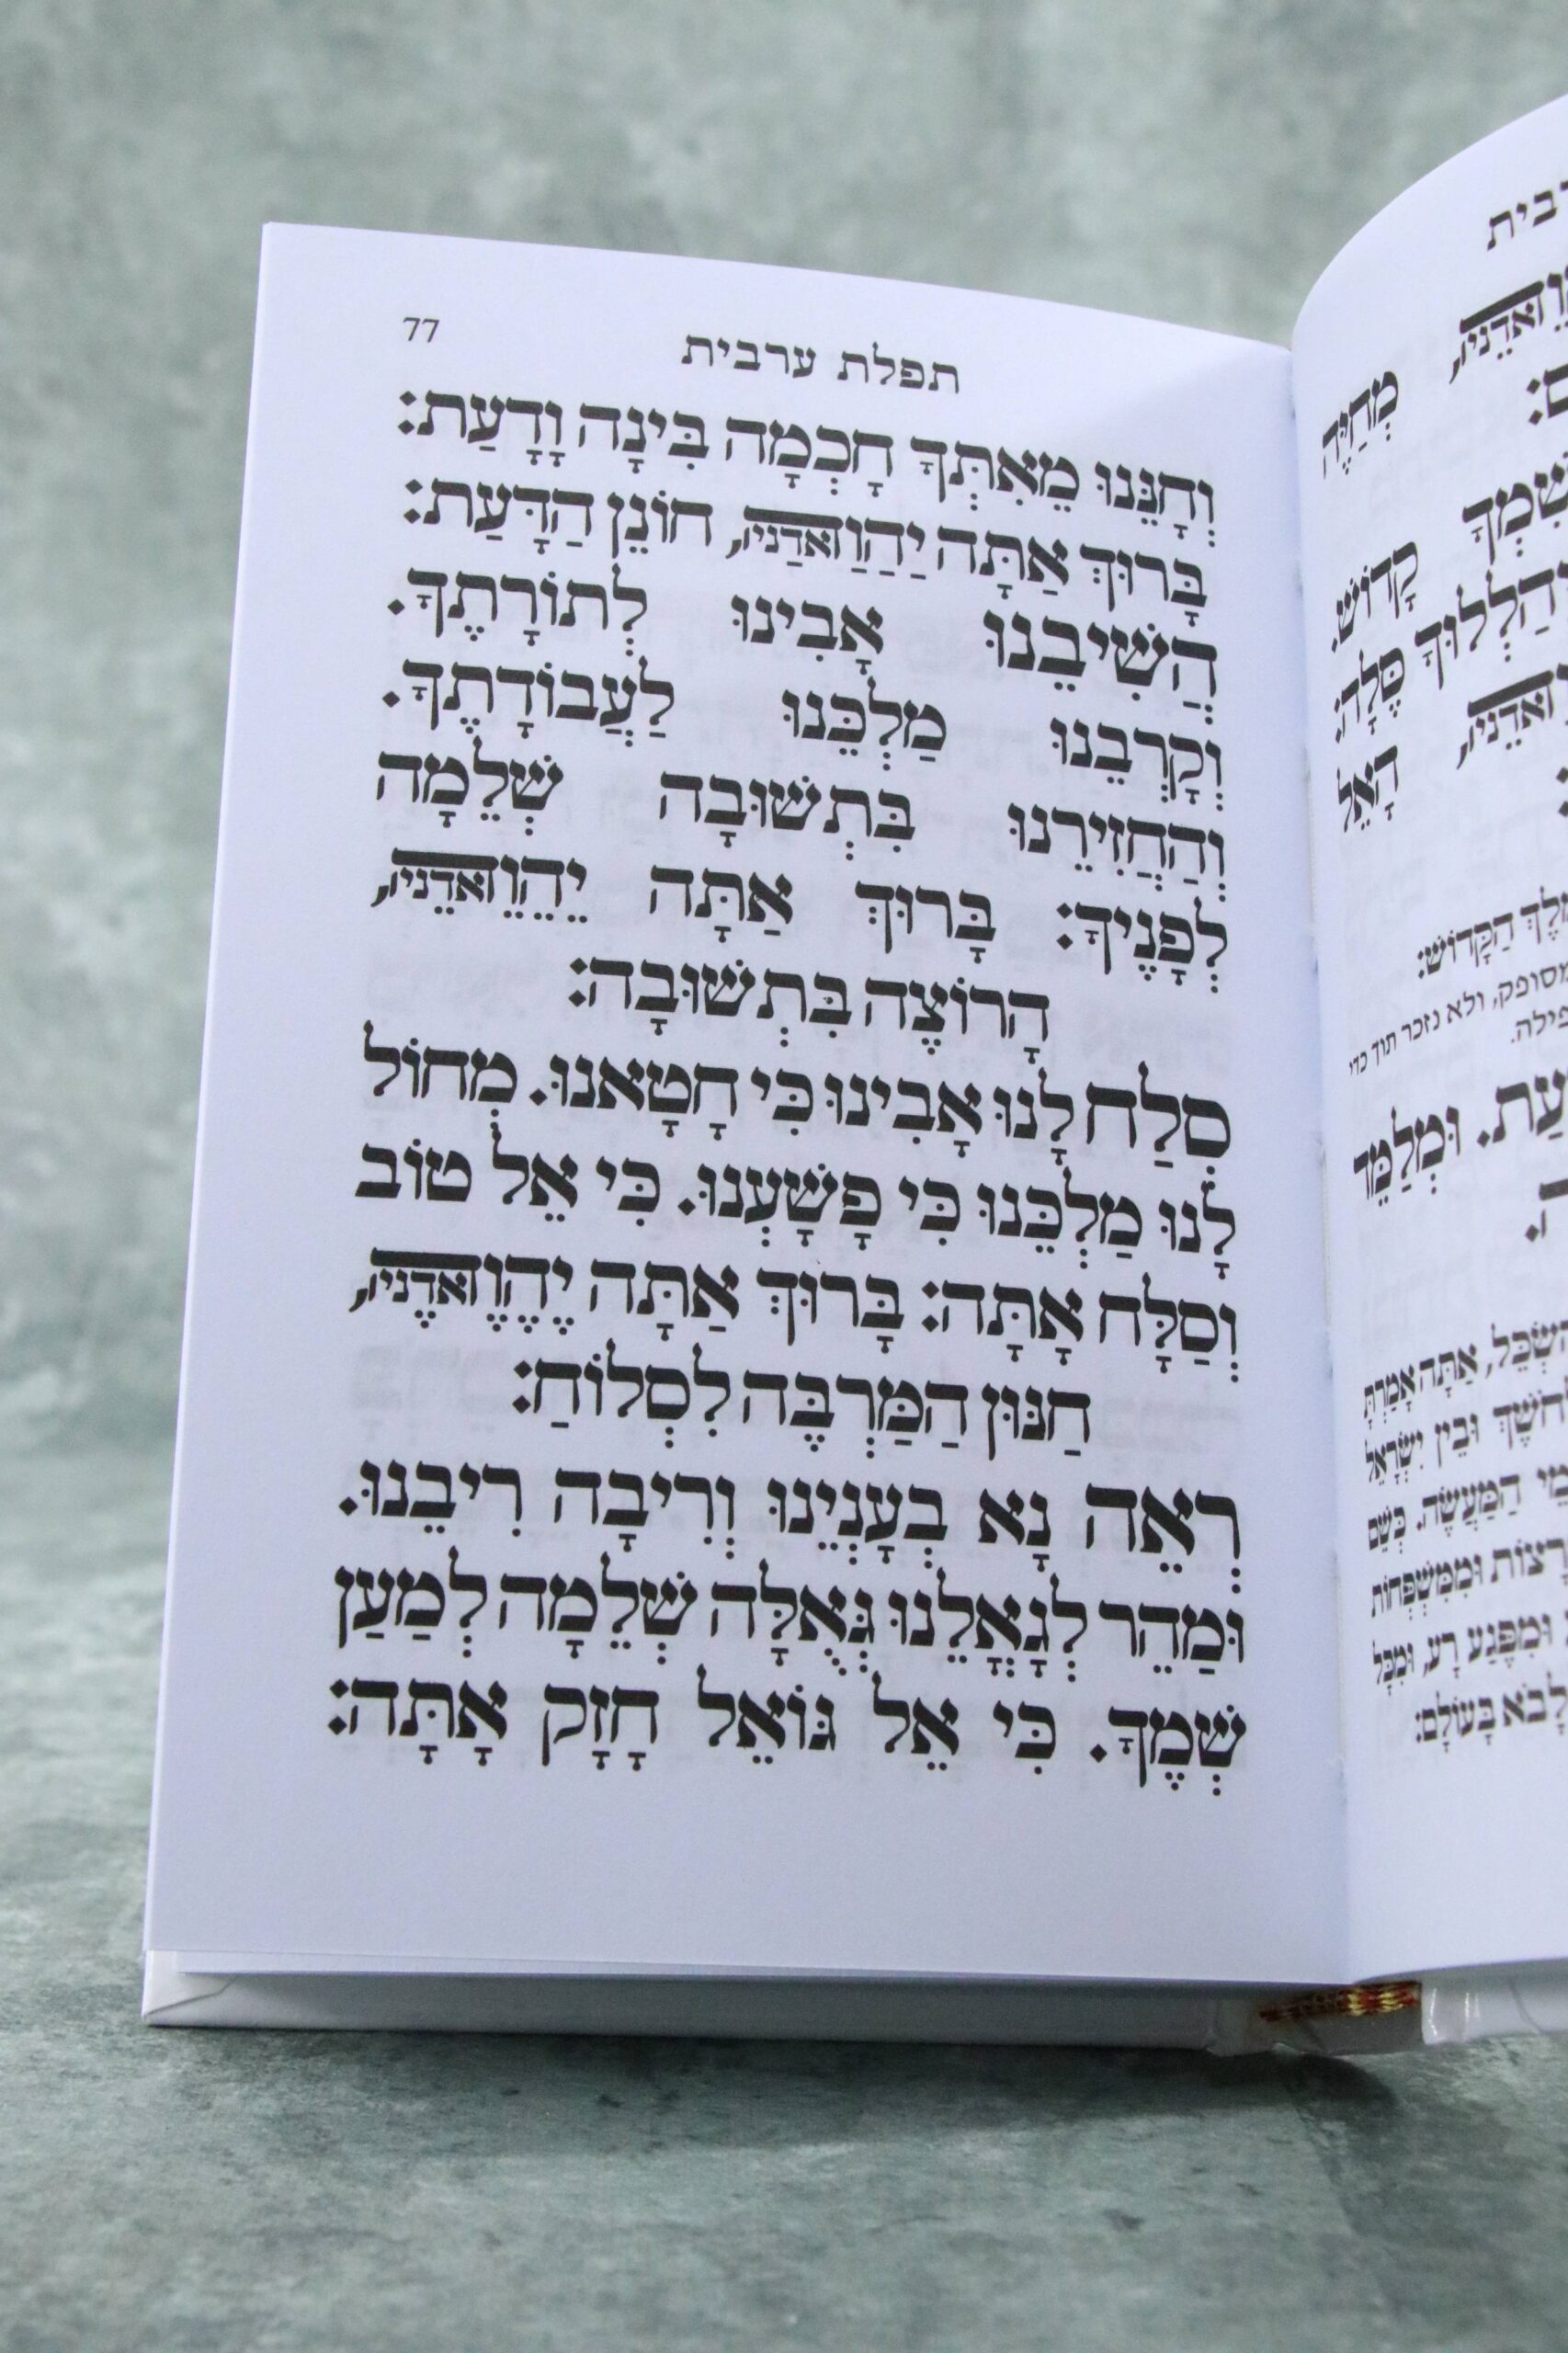 תפלת ערבית 77
וְחָנֵּנוּ מֵאִתְּךָ חָכְמָה בִּינָה וָדָעַת:
בָּרוּךְ אַתָּה יַהַוַהאדַנָיַ, חוֹנֵן הַדָּעַת:
הֲשִׁיבֵנוּ אָבִינוּ לְתוֹרָתֶךָ.
וְקָרְבֵנוּ מַלְכֵּנוּ לַעֲבוֹדָתֶךָ.
וְהַחֲזִירֵנוּ בִּתְשׁוּבָה שְׁלֵמָה
לְפָנֶיךָ: בָּרוּךְ אַתָּה יֵהֵוֵהאדֵניֵ,
הָרוֹצֶה בִּתְשׁוּבָה:
סְלַח לָנוּ אָבִינוּ כִּי חָטָאנוּ. מְחוֹל
לָנוּ מַלְכֵּנוּ כִּי פָשָׁעְנוּ. כִּי אֵל טוֹב
וְסַלָּח אָתָּה: בָּרוּךְ אַתָּה יֶהֶוֶהאדֶניֶ,
חַנּוּן הַמַּרְבֶּה לִסְלוֹחַ:
רְאֵה נָא בְעָנְיֵנוּ וְרִיבָה רִיבֵנוּ.
וּמַהֵר לְגָאֳלֵנוּ גְּאֻלָּה שְׁלֵמָה לְמַעַן
שְׁמֶךָ. כִּי אֵל גּוֹאֵל חָזָק אָתָּה:
מְחַיֵּה
קָדוֹשׁ.
יְהַלְלוּךָ סֶּלָה:
הָאֵל
מֶלֶךְ הַקָּדוֹשׁ:
מסופק, ולא נזכר תוך כדי
וּמְלַמֵּד
אַתָּה אָמַרְתָּ
וּבֵין יִשְׂרָאֵל
הַמַּעֲשֶׂה. כְּשֵׁם
וּמִמִּשְׁפְּחוֹת
וּמִפֶּגַע רָע, וּמִכָּל
לָבֹא בָּעוֹלָם: